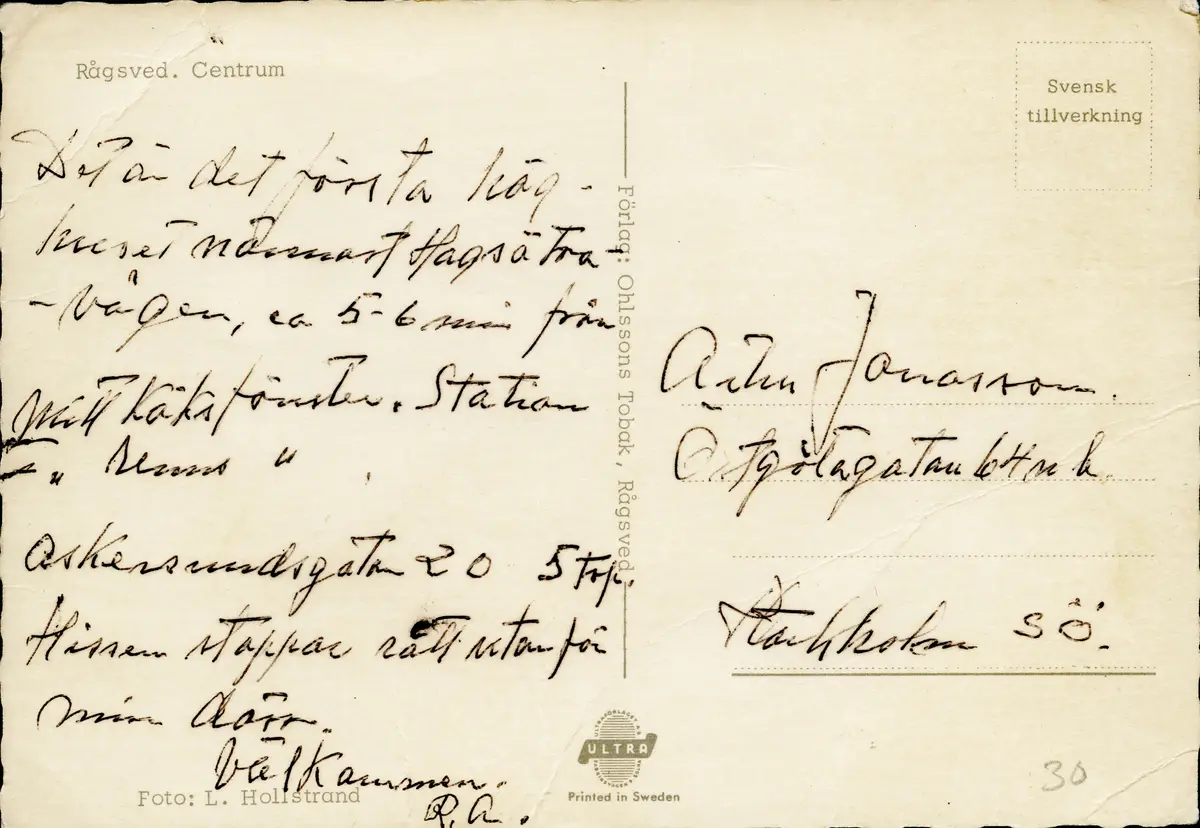 Rågsved. Centrum
Det är det första hög-
huset närmast Hagsätra-
-vägen, ca 5-6 min från
mitt köksfönster. Station
" "
Askersundsgatan 20 5 trp.
Hissen stoppar rätt utanför
min dörr.
Välkommen.
R.A.
Foto: L. Hollstrand
Förlag: Ohlssons Tobak, Rågsved
ULTRA
Printed in Sweden
Svensk
tillverkning
Jonasson.
Östgötagatan 64
Stockholm SÖ.
30